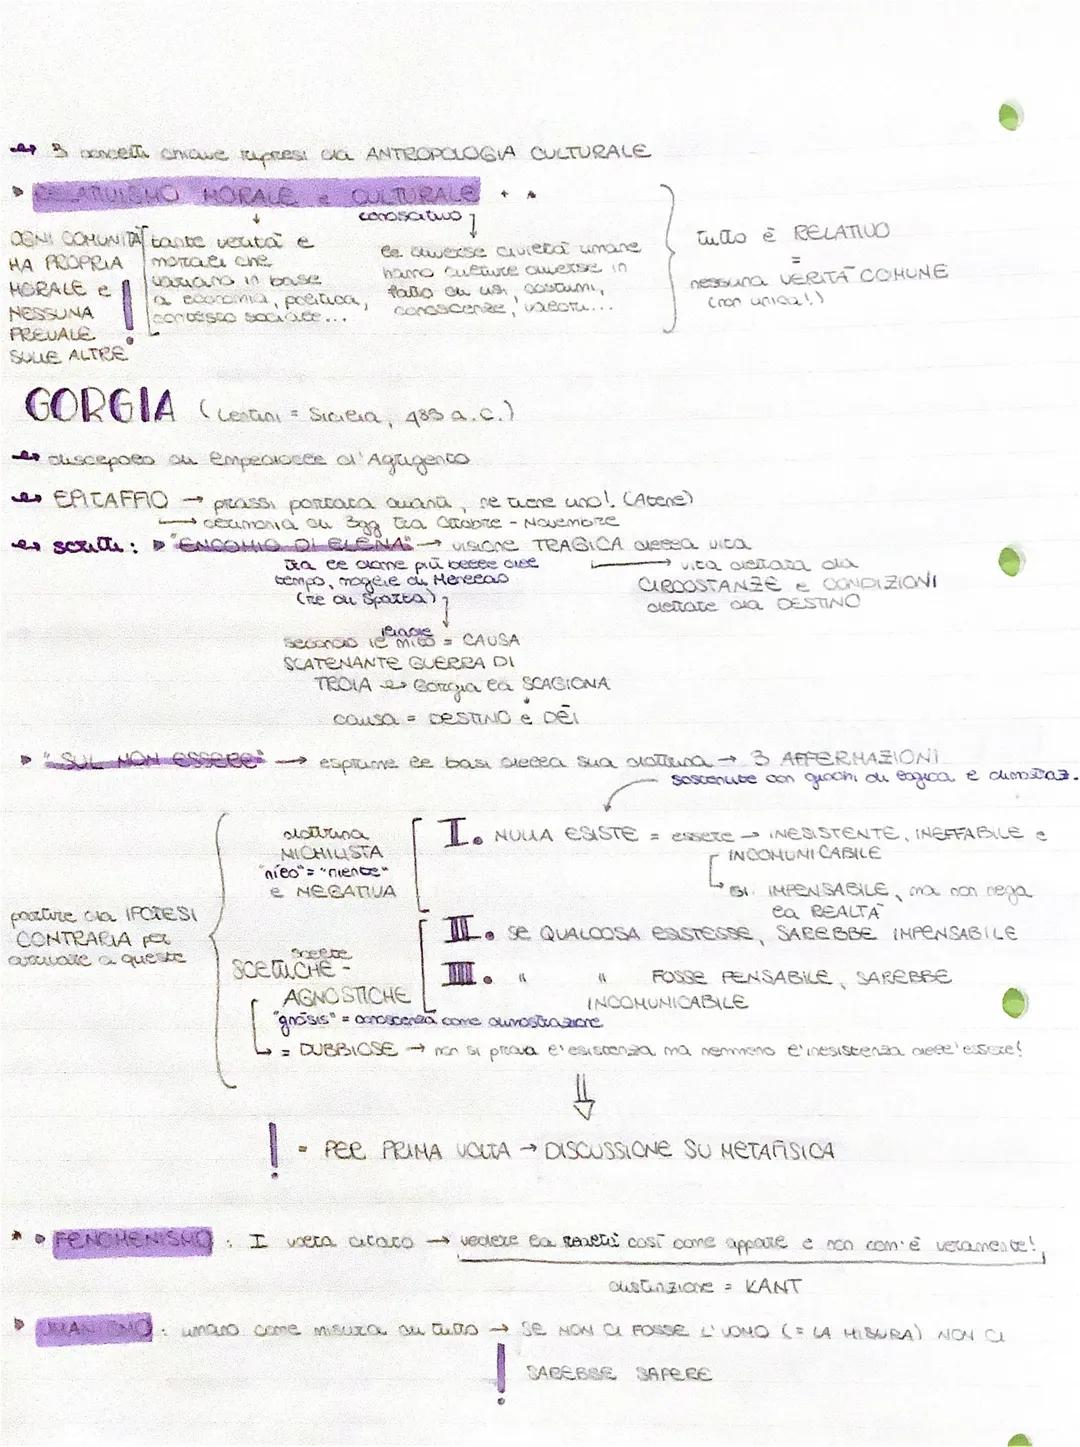 3 concetti chiave ripresi da ANTROPOLOGIA CULTURALE
RELATIVISMO MORALE e CULTURALE + *
conoscitivo
OGNI COMUNITÀ
HA PROPRIA
MORALE e
NESSUNA
PREVALE
SULLE ALTRE
!
tante verità e
morali che
variano in base
a economia, politica,
contesto sociale...
le diverse civiltà umane
hanno culture diverse in
fatto di usi, costumi,
conoscenze, valori...
tutto è RELATIVO
=
nessuna VERITÀ COMUNE
(non unica!)
GORGIA (Lentini = Sicilia, 483 a.C.)
discepolo di Empedocle d'Agrigento
EPITAFFIO → prassi portata avanti, ne tiene uno! (Atene)
→ cerimonia di 3gg tra Ottobre - Novembre
scritti: "ENCOMIO DI ELENA" → visione TRAGICA della vita
tra le donne più belle del
tempo, moglie di Menelao
(re di Sparta)
→ vita dettata da
CIRCOSTANZE e CONDIZIONI
dettate da DESTINO
secondo il mito = CAUSA
SCATENANTE GUERRA DI
TROIA → Gorgia la SCAGIONA
causa = DESTINO e DEI
"SUL NON ESSERE" → esprime le basi della sua dottrina → 3 AFFERMAZIONI
sostenute con giochi di logica e dimostraz.
partire da IPOTESI
CONTRARIA per
arrivare a queste
dottrina
NICHILISTA
"nilo" = "niente"
e NEGATIVA
I. NULLA ESISTE = essere → INESISTENTE, INEFFABILE e
INCOMUNICABILE
IMPENSABILE, ma non nega
la REALTÀ
II. SE QUALCOSA ESISTESSE, SAREBBE IMPENSABILE
III. " " FOSSE PENSABILE, SAREBBE
INCOMUNICABILE
scelte
SCETTICHE -
AGNOSTICHE
"gnosis" = conoscenza come dimostrazione
= DUBBIOSE → non si prova l'esistenza ma nemmeno l'inesistenza dell'essere!
⇓
! = PER PRIMA VOLTA → DISCUSSIONE SU METAFISICA
* FENOMENISMO: I volta citato → vedere la realtà così come appare e non com'è veramente!
distinzione = KANT
UMANISMO: umano come misura di tutto → SE NON CI FOSSE L'UOMO (= LA MISURA) NON CI
! SAREBBE SAPERE